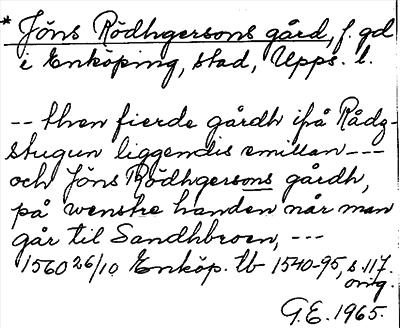 * Jöns Rödhgersons gård, f. gd
i Enköping, stad, Upps. l.
-- then fierde gårdh ifrå Rådz-
stugun liggendis emillan ---
och Jöns Rödhgersons gårdh,
på wenstre handen når man
går til Sandhbroen, ---
1560 26/10 Enköp. tb 1540-95, s 117.
orig.
G.E. 1965.